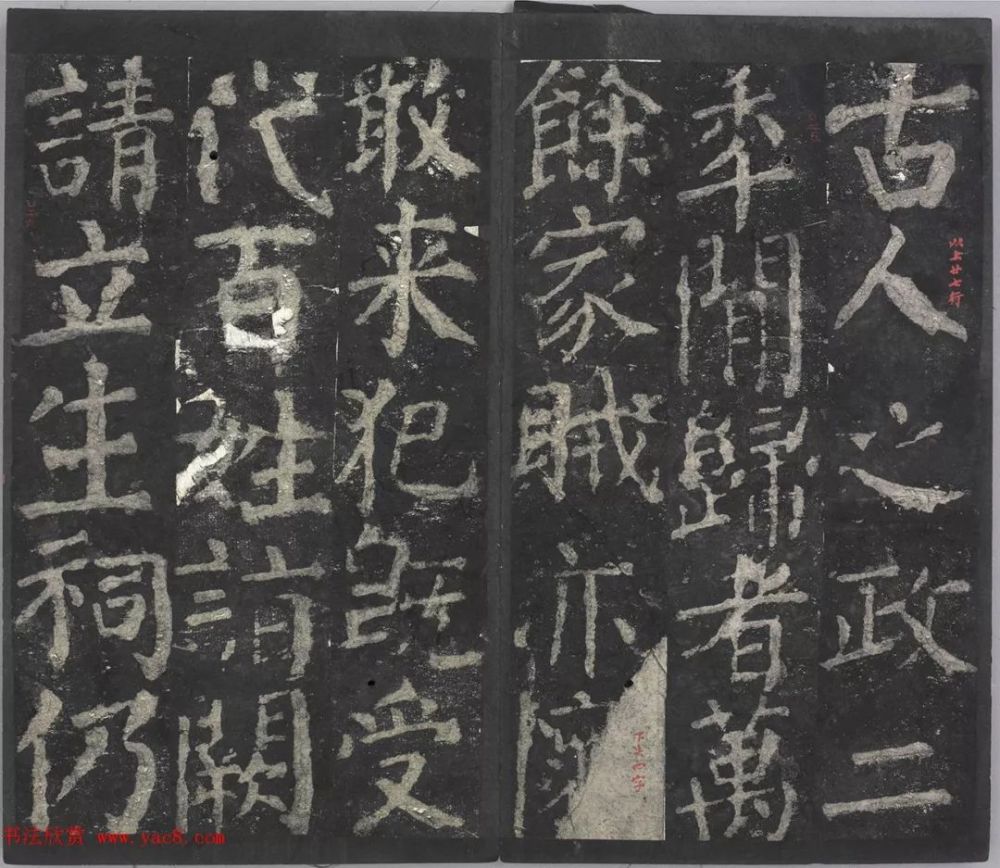 古人之政二
秊閒歸者萬
餘家賊亦
敢来犯既受
代百姓詣闕
請立生祠仍
以上廿七行
书法欣赏 www.yac8.com